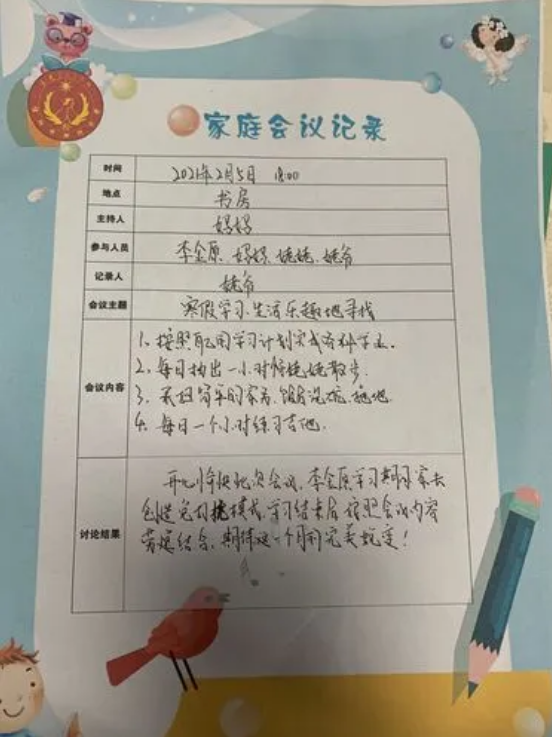 家庭会议记录
时间 2021年2月5日 18:00
地点 书房
主持人 妈妈
参与人员 李金原、妈妈、姥姥、姥爷
记录人 姥爷
会议主题 寒假学习、生活乐趣地寻找
会议内容
1、按照自己的学习计划完成各种学业。
2、每日抽出一小时陪姥姥散步。
3、承担简单的家务,饭后洗碗、拖地。
4、每日一个小时练习吉他。
讨论结果
开心愉快此次会议,李金原学习期间家长
创造免打扰模式,学习结束后 按照会议内容
劳逸结合,期待这一个月的完美蜕变!